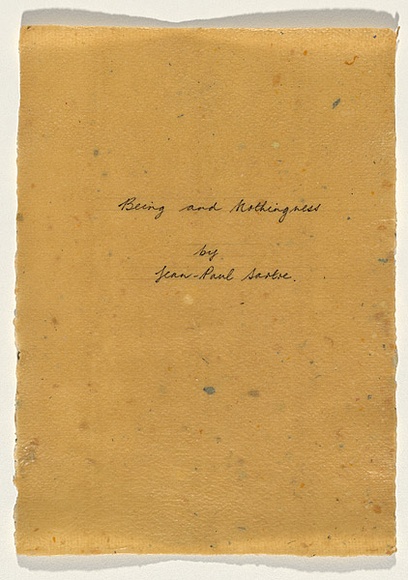 Being and Nothingness
by
Jean-Paul Sartre.